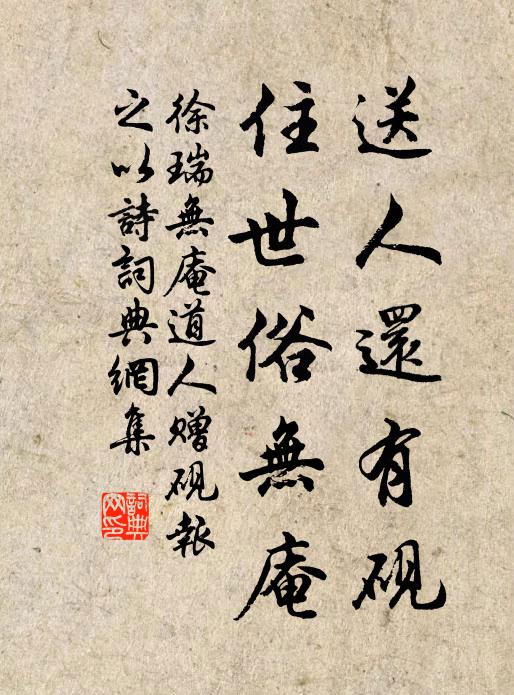 送人還有硯
住世俗無庵
徐瑞無庵道人赠硯報
之以詩詞典網集
詞典
网印